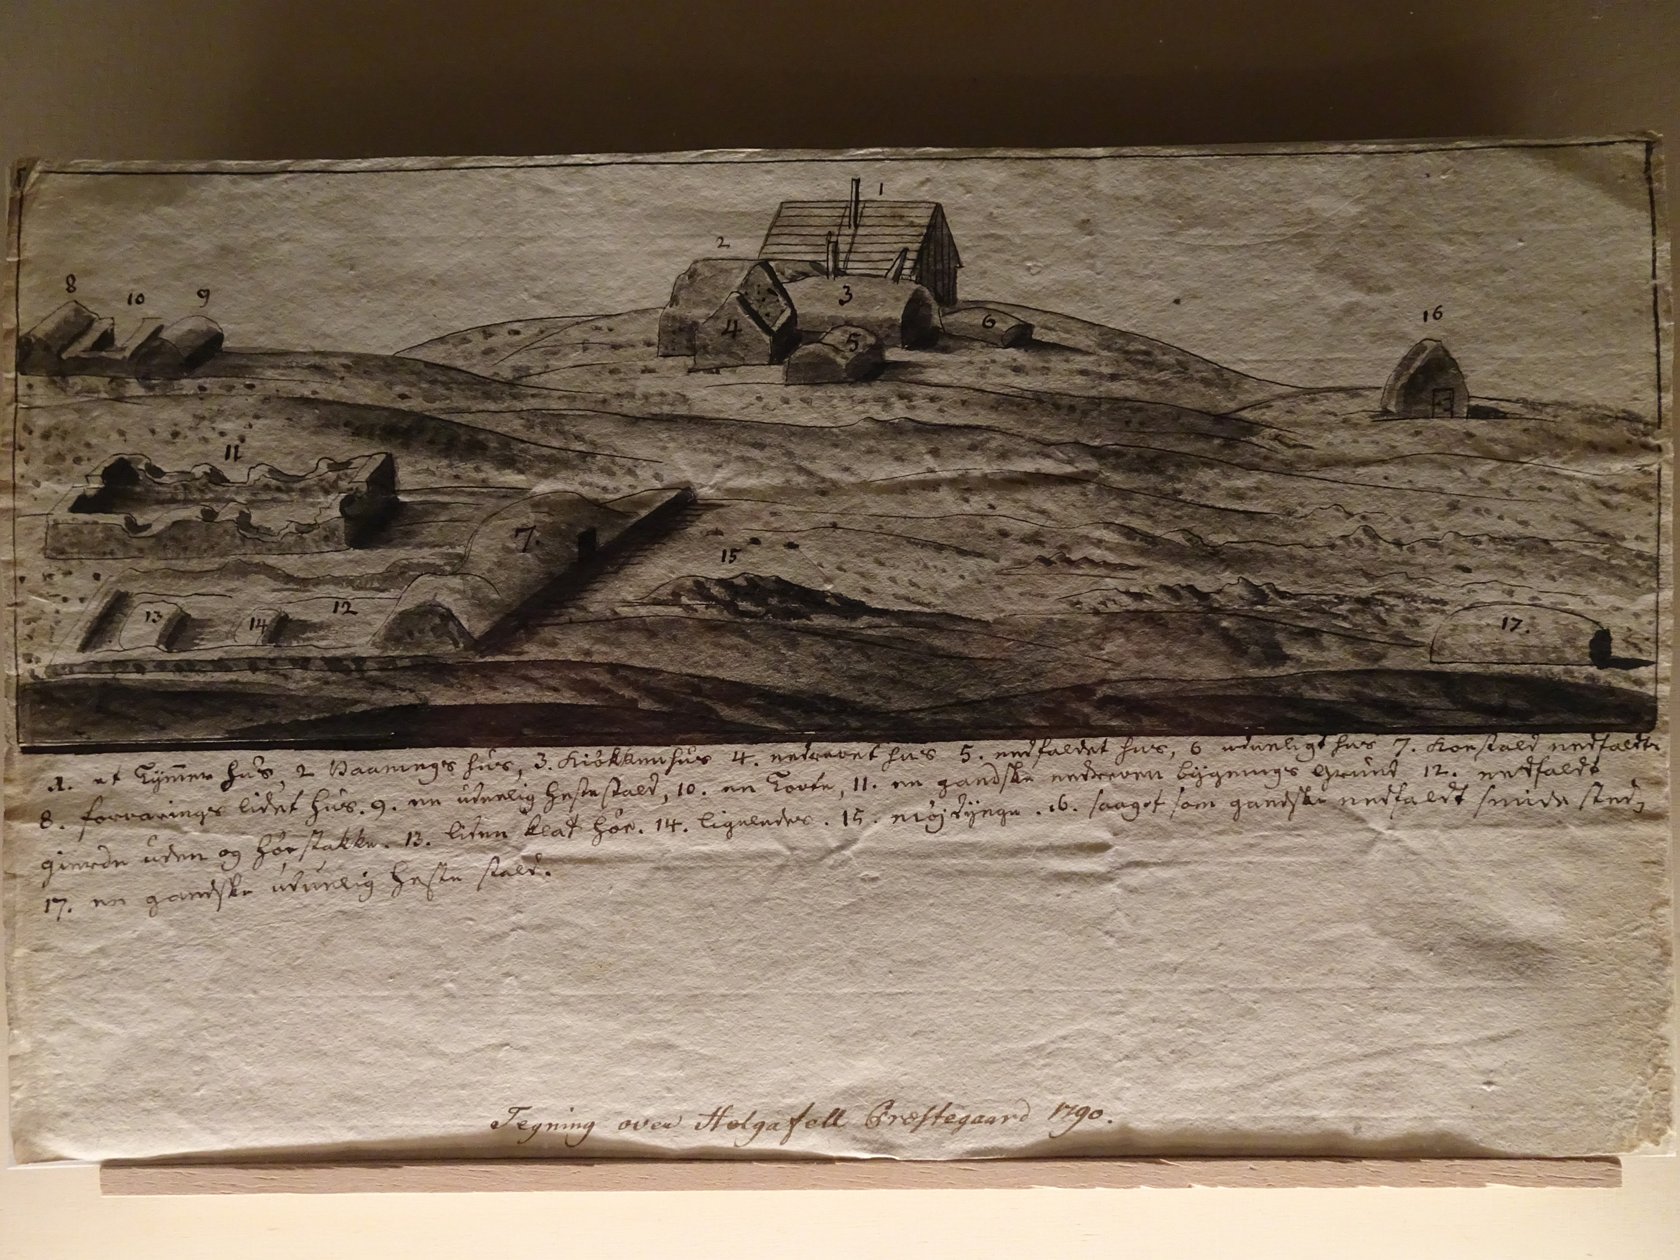 1
2
3
4
5
6
16
8
10
9
11
7.
15
13
14
12
17.
1. et Tÿmmer hŭs, 2 Vaanings hŭs, 3. Kiökkenhŭs 4. nedrevet hŭs 5. nedfaldet hŭs, 6 uduelig hŭs 7. Koestald nedfaldt
8. forvarings lidet hŭs. 9. en ŭduelig hestestald, 10. en Tovte, 11. en gandske nedreven bÿgnings Grŭnd 12. nedfaldt
gierde ŭden og höestakke. 13. liden klat höe. 14. ligeledes. 15. Möjdÿnge. 16. saagot som gandske nedfaldt smide sted,
17. en gandske ŭduelig heste stald.
Tegning over Helgafell Præstegaard 1790.